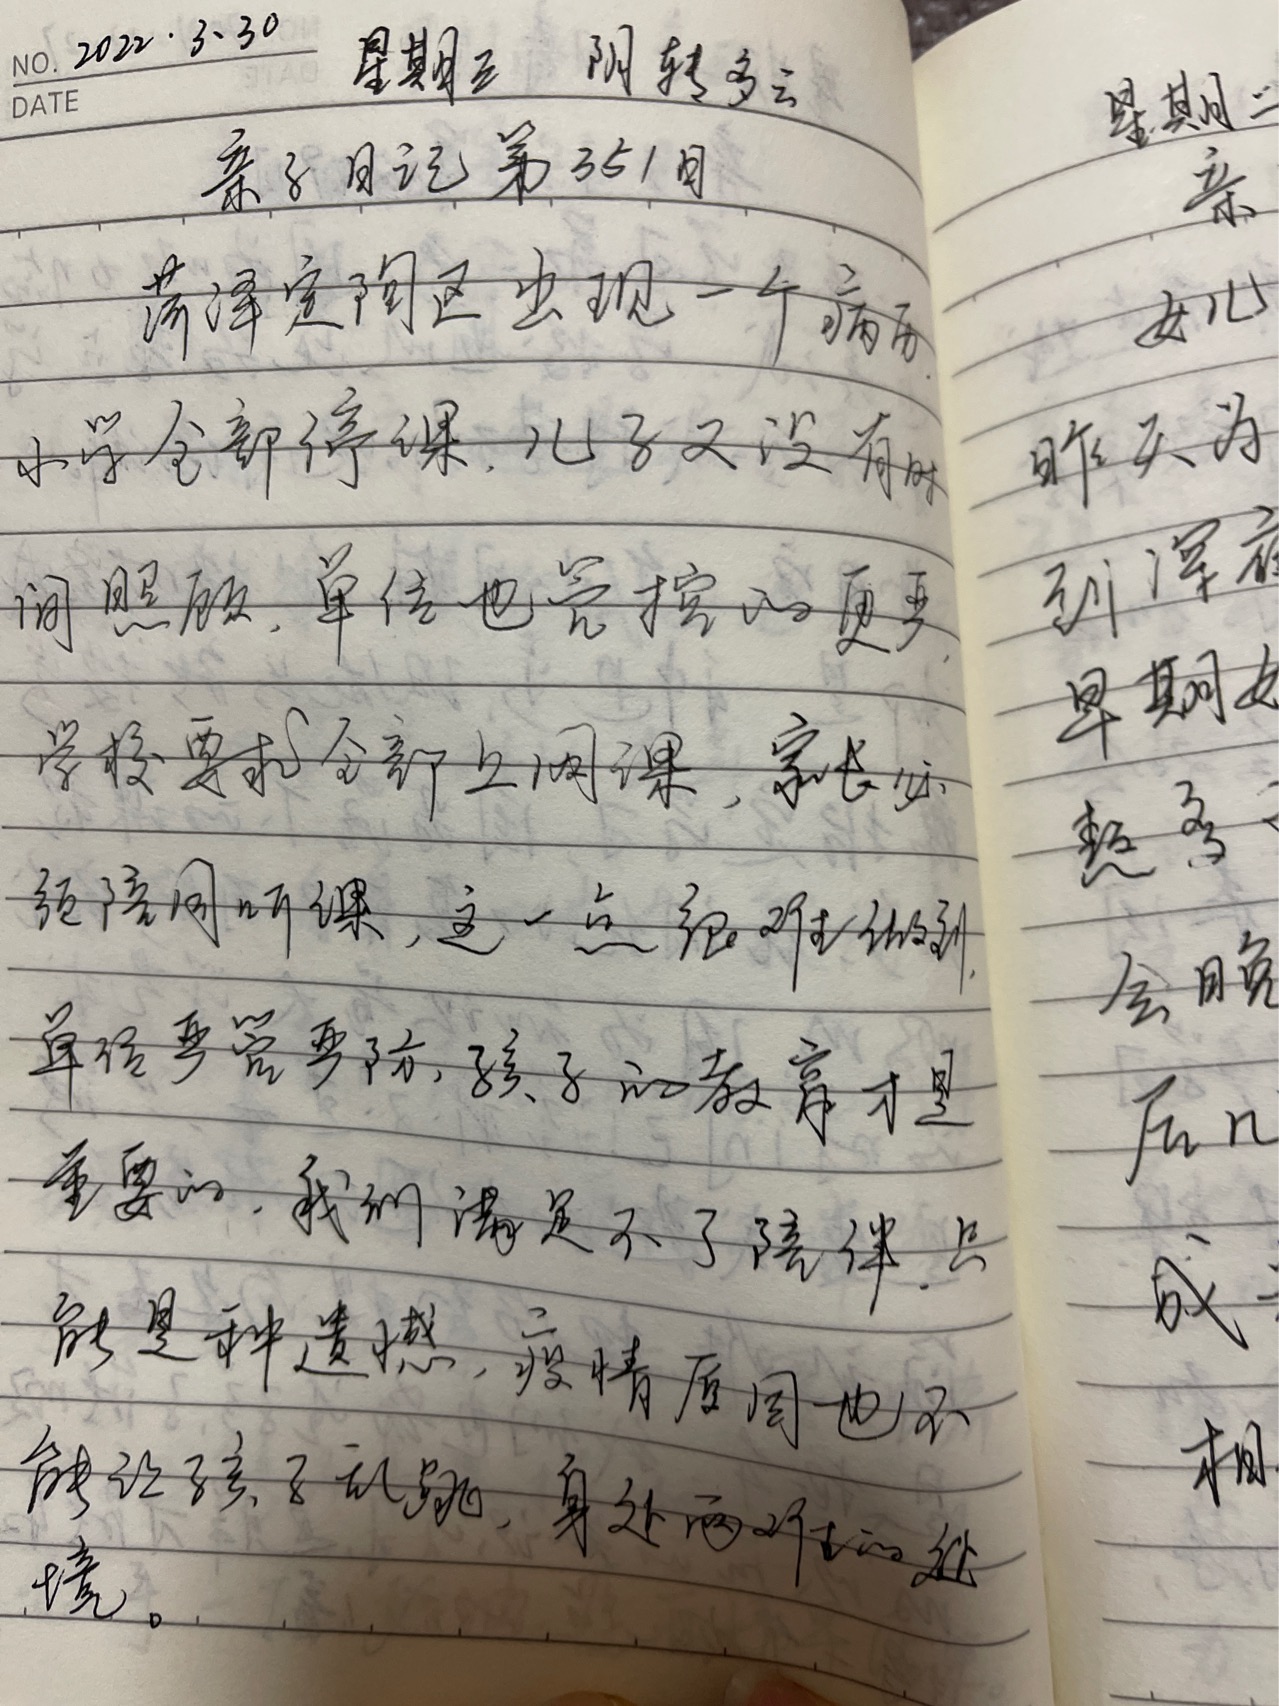 NO. 2022.3.30
DATE
星期三 阴转多云
亲子日记第351日
菏泽定陶区出现一个病历,
小学全部停课,儿子又没有时
间照顾,单位也管控的更严,
学校要求全部上网课,家长必
须陪同听课,这一点很难做到,
单位严管严防,孩子的教育才是
重要的,我们满足不了陪伴,只
能是种遗憾,疫情原因也不
能让孩子乱跑,身处两难的处
境。
星期二
亲
女儿
昨天为
到深夜
早期女
想多
会晚
后几
成
相